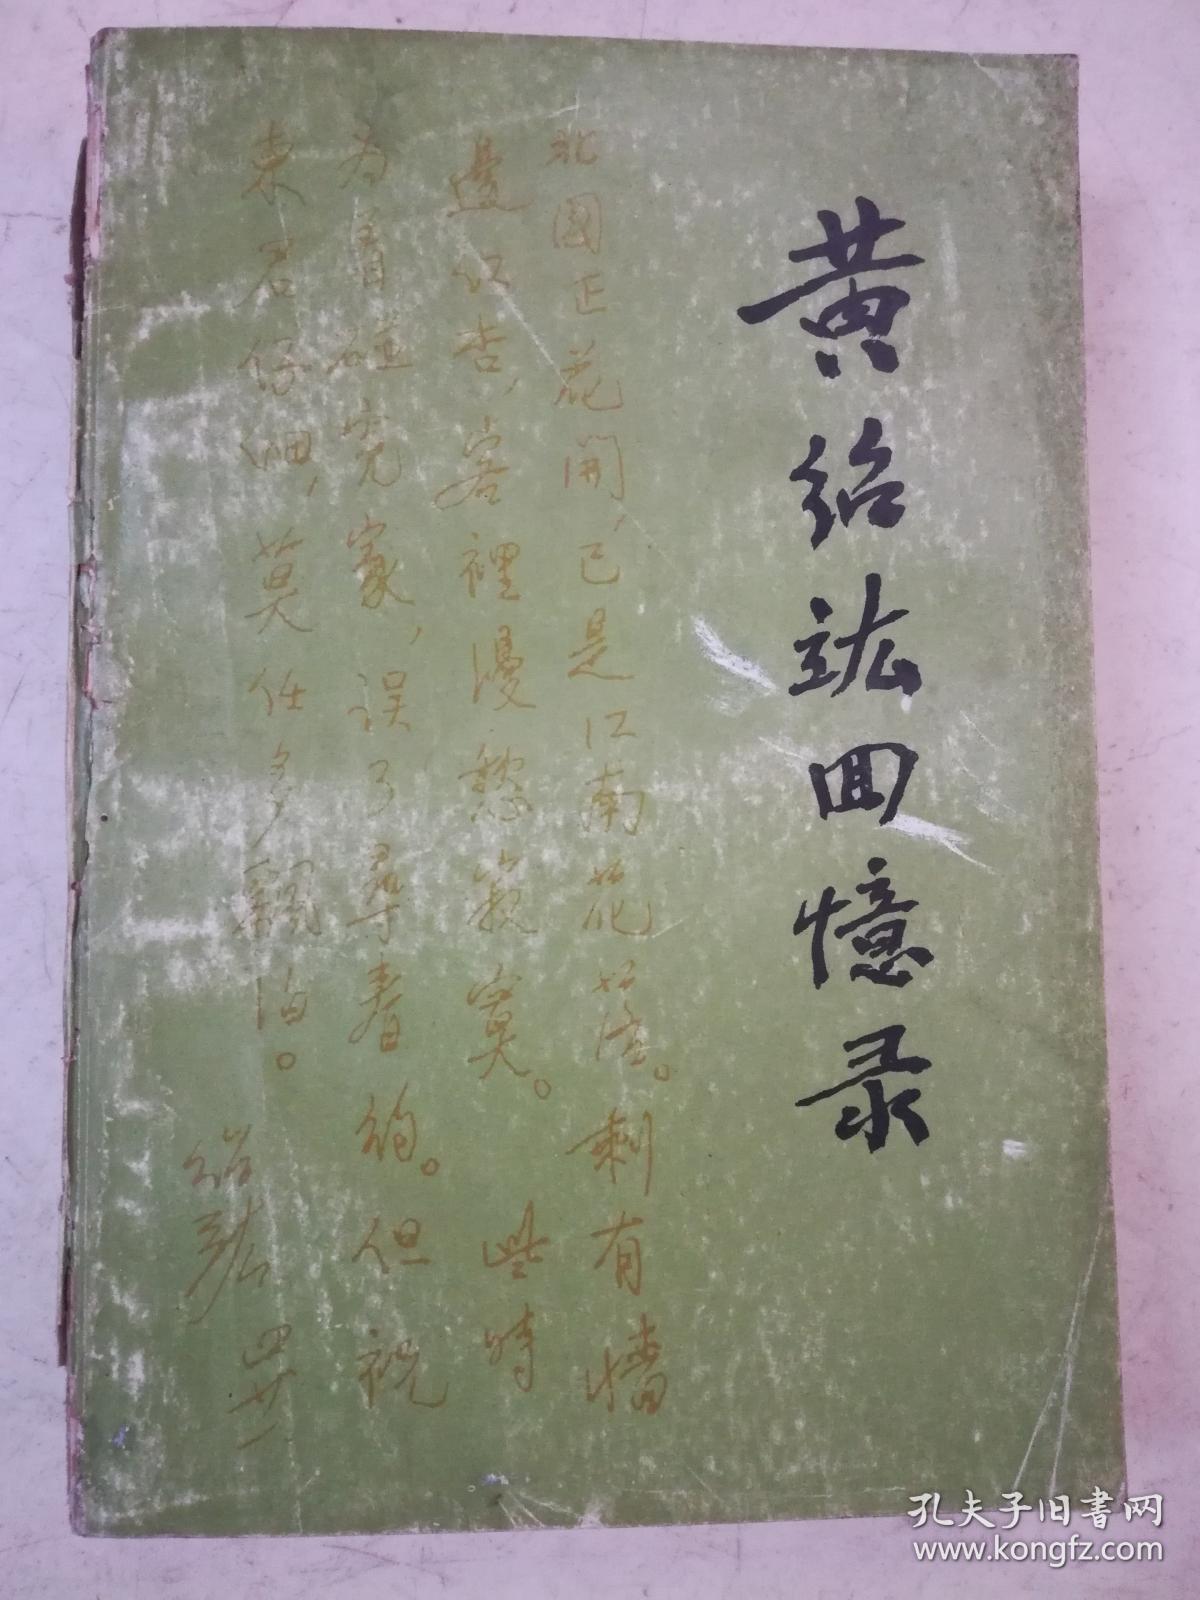 黄绍竑回憶录
北國正花開，已是江南花落。剩有墻
邊红杏，客裡漫愁寂寞。 些時
为着碰冤家，误了尋春约。但祝
東君仔細，莫任多飄泊。
绍竑 四廿一
孔夫子旧书网
www.kongfz.com